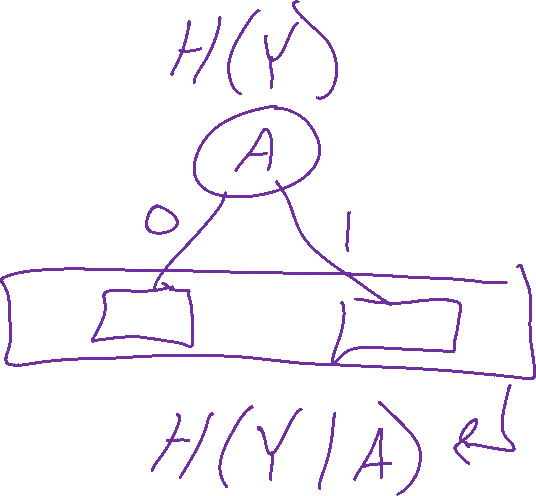 H(Y)
A
0 1
H(Y|A)